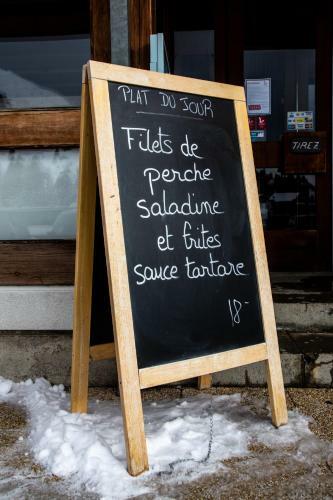 PLAT DU JOUR
Filets de
perche
saladine
et frites
sauce tartare
18.-
TIREZ